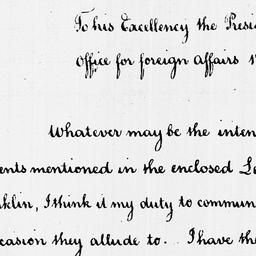 To his Excellency the Presi
Office for foreign Affairs 1
Whatever may be the inten
ents mentioned in the enclosed Le
klin, I think it my duty to commun
casion they allude to. I have the